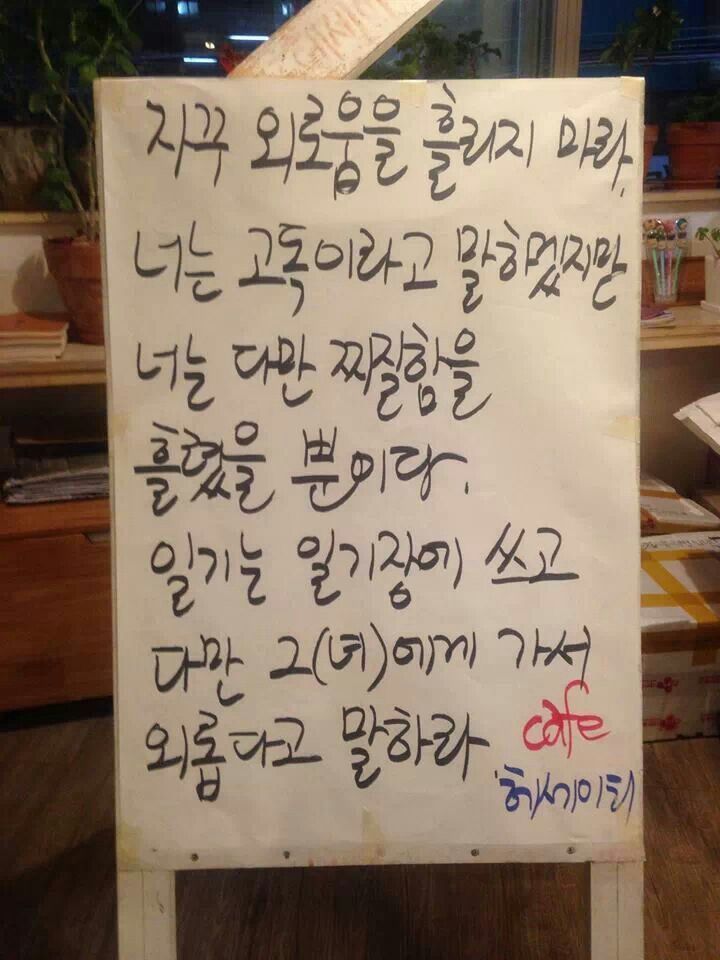 자꾸 외로움을 흘리지 마라.
너는 고독이라고 말하였지만
너는 다만 찌질함을
흘렸을 뿐이다.
일기는 일기장에 쓰고
다만 그(녀)에게 가서
외롭다고 말하라
cafe
허세이티